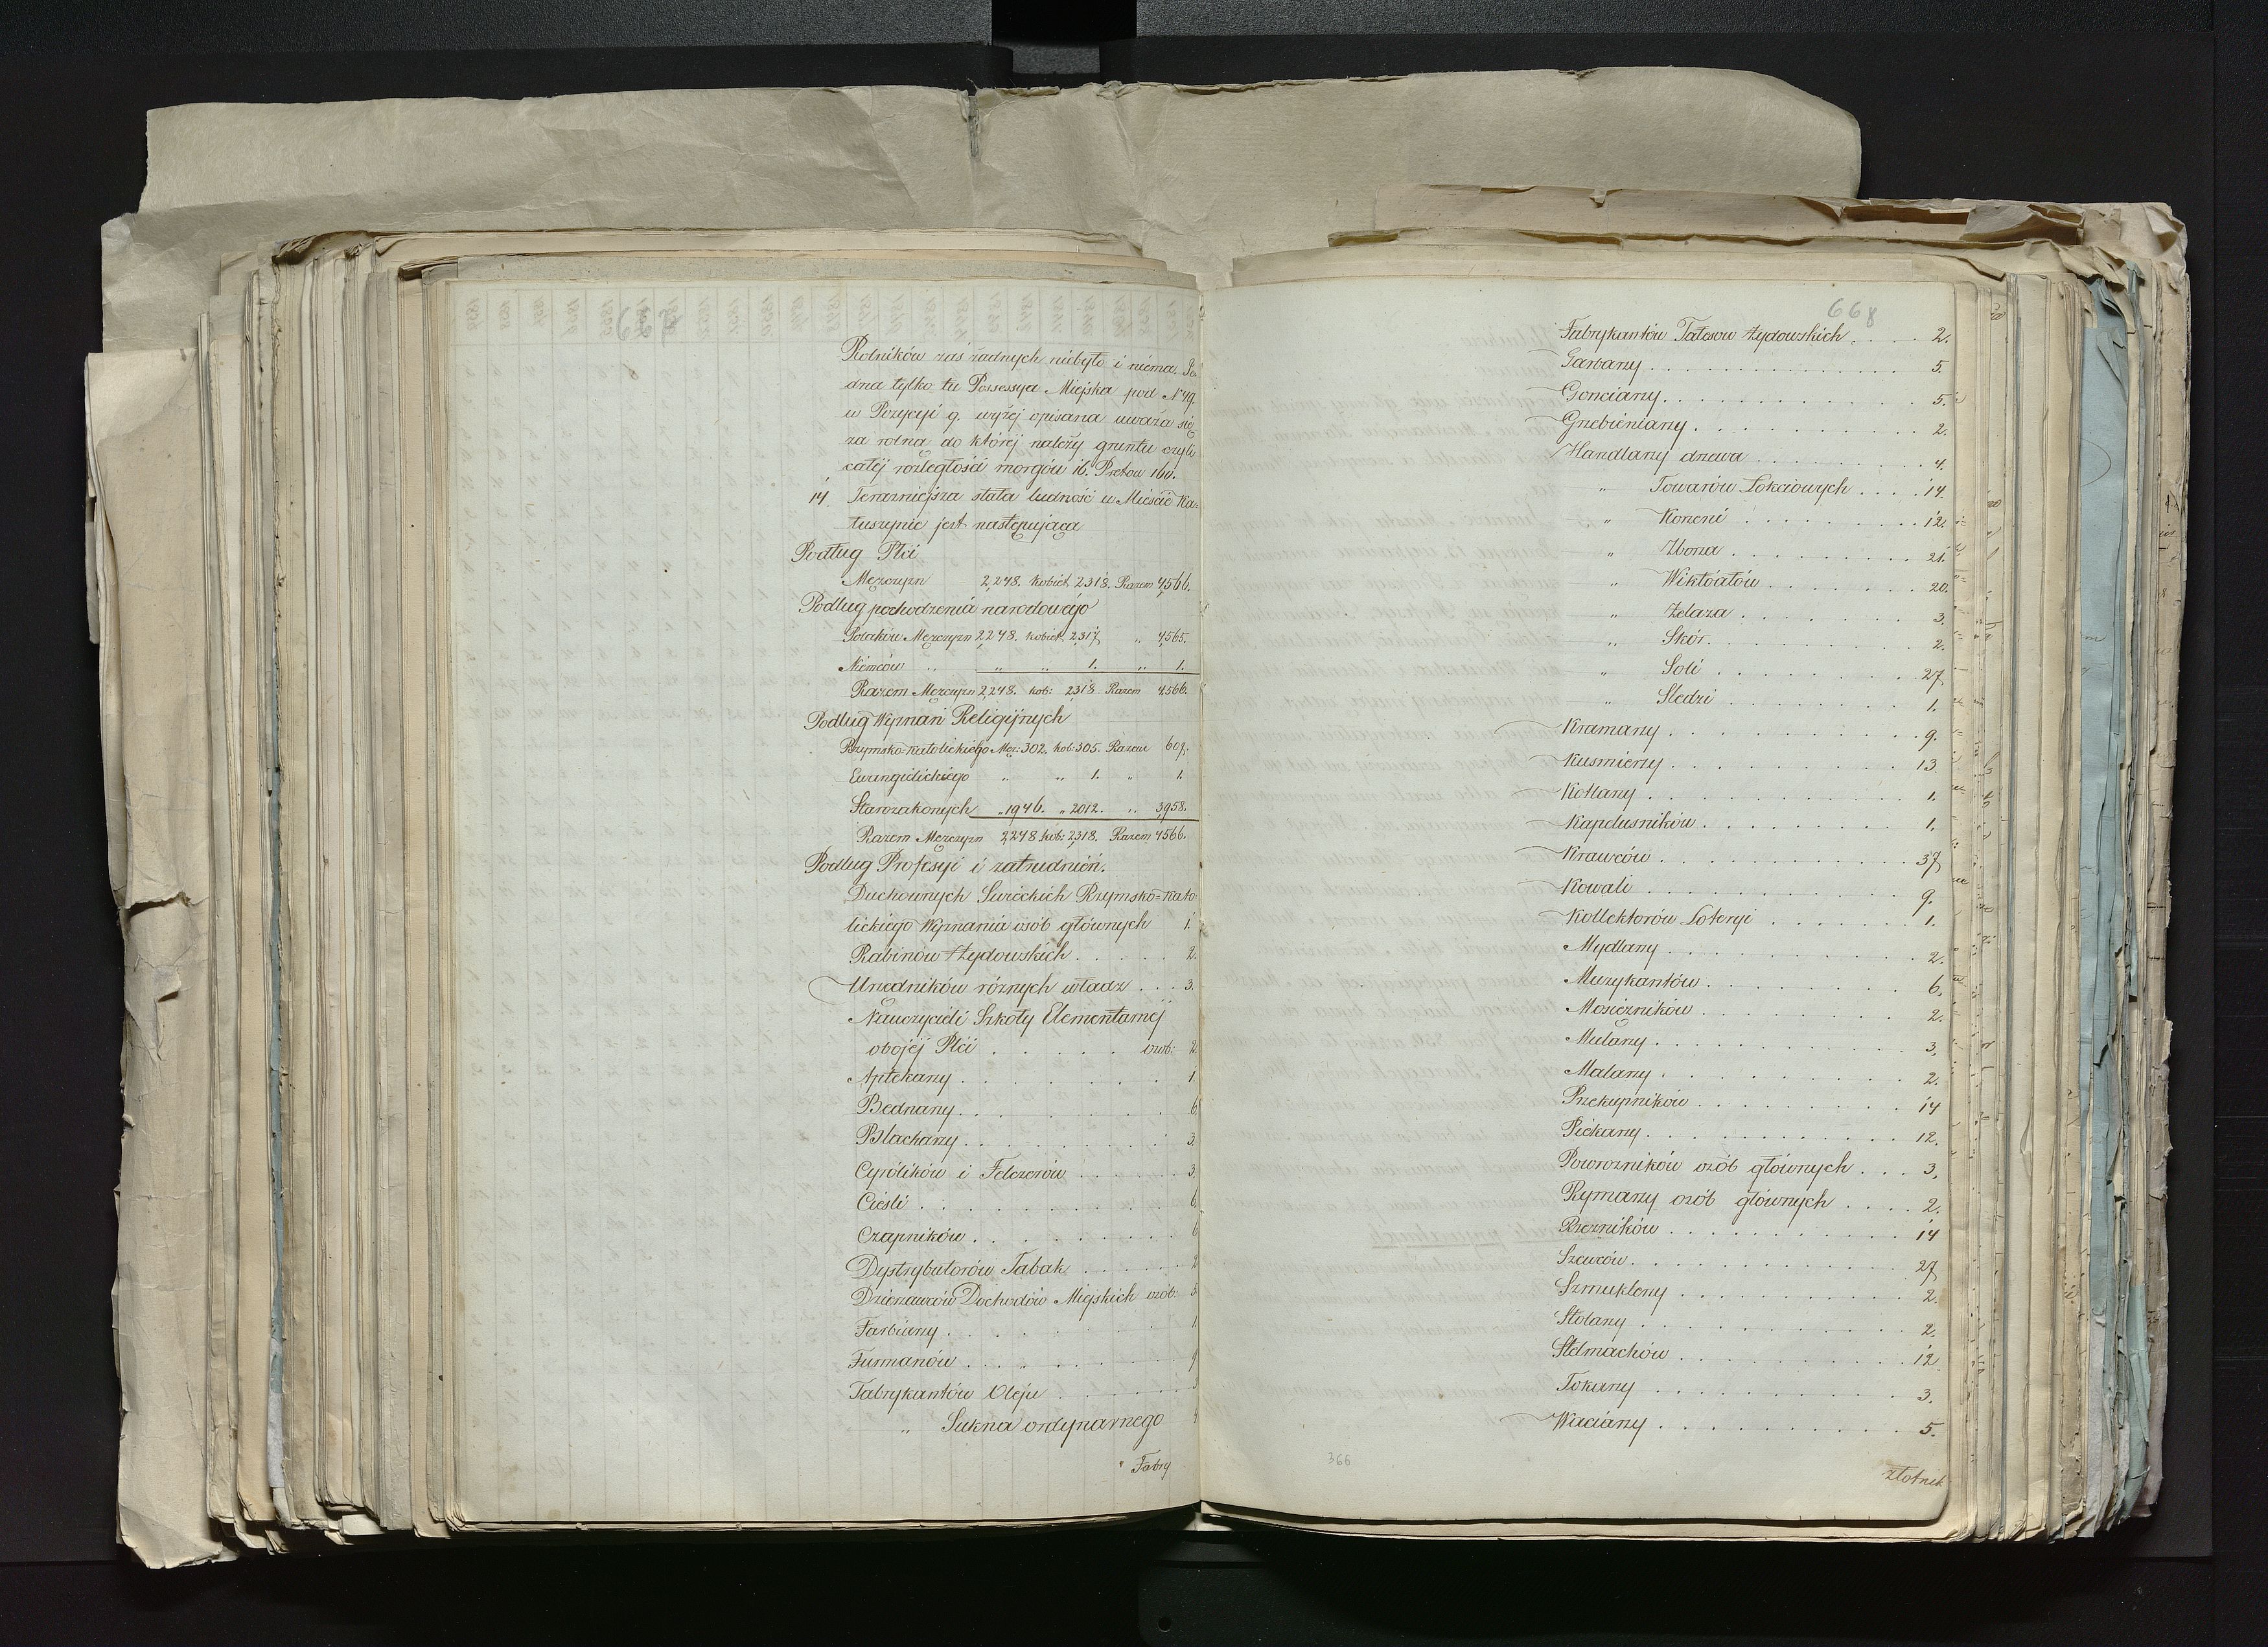 Rolników zaś żadnych niebyło i niéma. Je-
dna tylko tu Possessya Miejska pod N 49.
w Pozycyi 9. wyżéj opisana uważa się
za rolną do któréj należy gruntu czyli
całéj rozległości morgów 16. Prętów 160.
14 Teraźniejsza stała ludność w Mieście Ka-
łuszynie jest następująca
Podług Płci
Mężczyzn 2,248. kobiet 2,318. Razem 4,566.
Podług pochodzenia narodowego
Polaków Mężczyzn 2,248. kobiet 2,317 „ 4,565.
Niemców „ „ „ 1. „ 1.
Razem Mężczyzn 2,248. kob: 2,318 Razem 4,566.
Podług Wyznań Religijnych
Rzymsko-Katolickiego Męz: 302. kob: 305. Razem 607.
Ewangielickiego „ „ 1. „ 1.
Starozakonnych „ 1946. „ 2012. „ 3,958.
Razem Mężczyzn 2,248 kob: 2,318. Razem 4,566.
Podług Profesyi i zatrudnień.
Duchownych Świeckich Rzymsko=Kato
lickiego Wyznania osób głównych 1.
Rabinów Żydowskich . . . . . 2.
Urzędników różnych władz . . . 3.
Nauczycieli Szkoły Elementarnéj
obojéj Płci . . . . . osób: 2.
Aptekarzy . . . . . . . 1.
Bednarzy . . . . . . . 6.
Blacharzy . . . . . . . 3.
Cyrólików i Felczerów . . . . . 3.
Cieśli . . . . . . . . 6.
Czapników . . . . . . . 6
Dystrybutorów Tabak . . . . . 2
Dzierżawców Dochodów Miejskich osób: 5
Farbiarzy . . . . . . . 1
Furmanów . . . . . . . 9
Fabrykantów Oleju . . . . .
„ Sukna ordynarnego 4
Fabry
668
Fabrykantów Tałesow Żydowskich . . . . 2.
Garbarzy . . . . . . . . 5.
Gonciarzy . . . . . . . . 5.
Grzebieniarzy . . . . . . . 2.
Handlarzy drzewa . . . . . . 4.
„ Towarów Łokciowych . . . . 14.
„ Korzeni . . . . . . . 12.
„ Zboża . . . . . . . 21.
„ Wiktóałów . . . . . . 20.
„ Żelaza . . . . . . . 3.
„ Skór . . . . . . . 2.
„ Soli . . . . . . . 27
„ Śledzi . . . . . . . 1.
Kramarzy . . . . . . . . 9.
Kuśmierzy . . . . . . . . 13
Kotlarzy . . . . . . . . 1.
Kapelusników . . . . . . . 1.
Krawców . . . . . . . . 37
Kowali . . . . . . . . 9.
Kollektorów Loteryi . . . . . . 1.
Mydlarzy . . . . . . . . 2.
Muzykantów . . . . . . . 6.
Mosiężników . . . . . . . 2.
Mularzy . . . . . . . . 3.
Malarzy . . . . . . . . 2.
Przekupników . . . . . . . 14
Piekarzy . . . . . . . . 12.
Powroźników osób głównych . . . 3.
Rymarzy osób głównych . . . . 2.
Rzeźników . . . . . . . . 14
Szewców . . . . . . . . 27
Szmuklerzy . . . . . . . 2.
Stolarzy . . . . . . . . 2.
Stelmachów . . . . . . . 12
Tokarzy . . . . . . . . 3.
Waciarzy . . . . . . . . 5.
366
złotnik